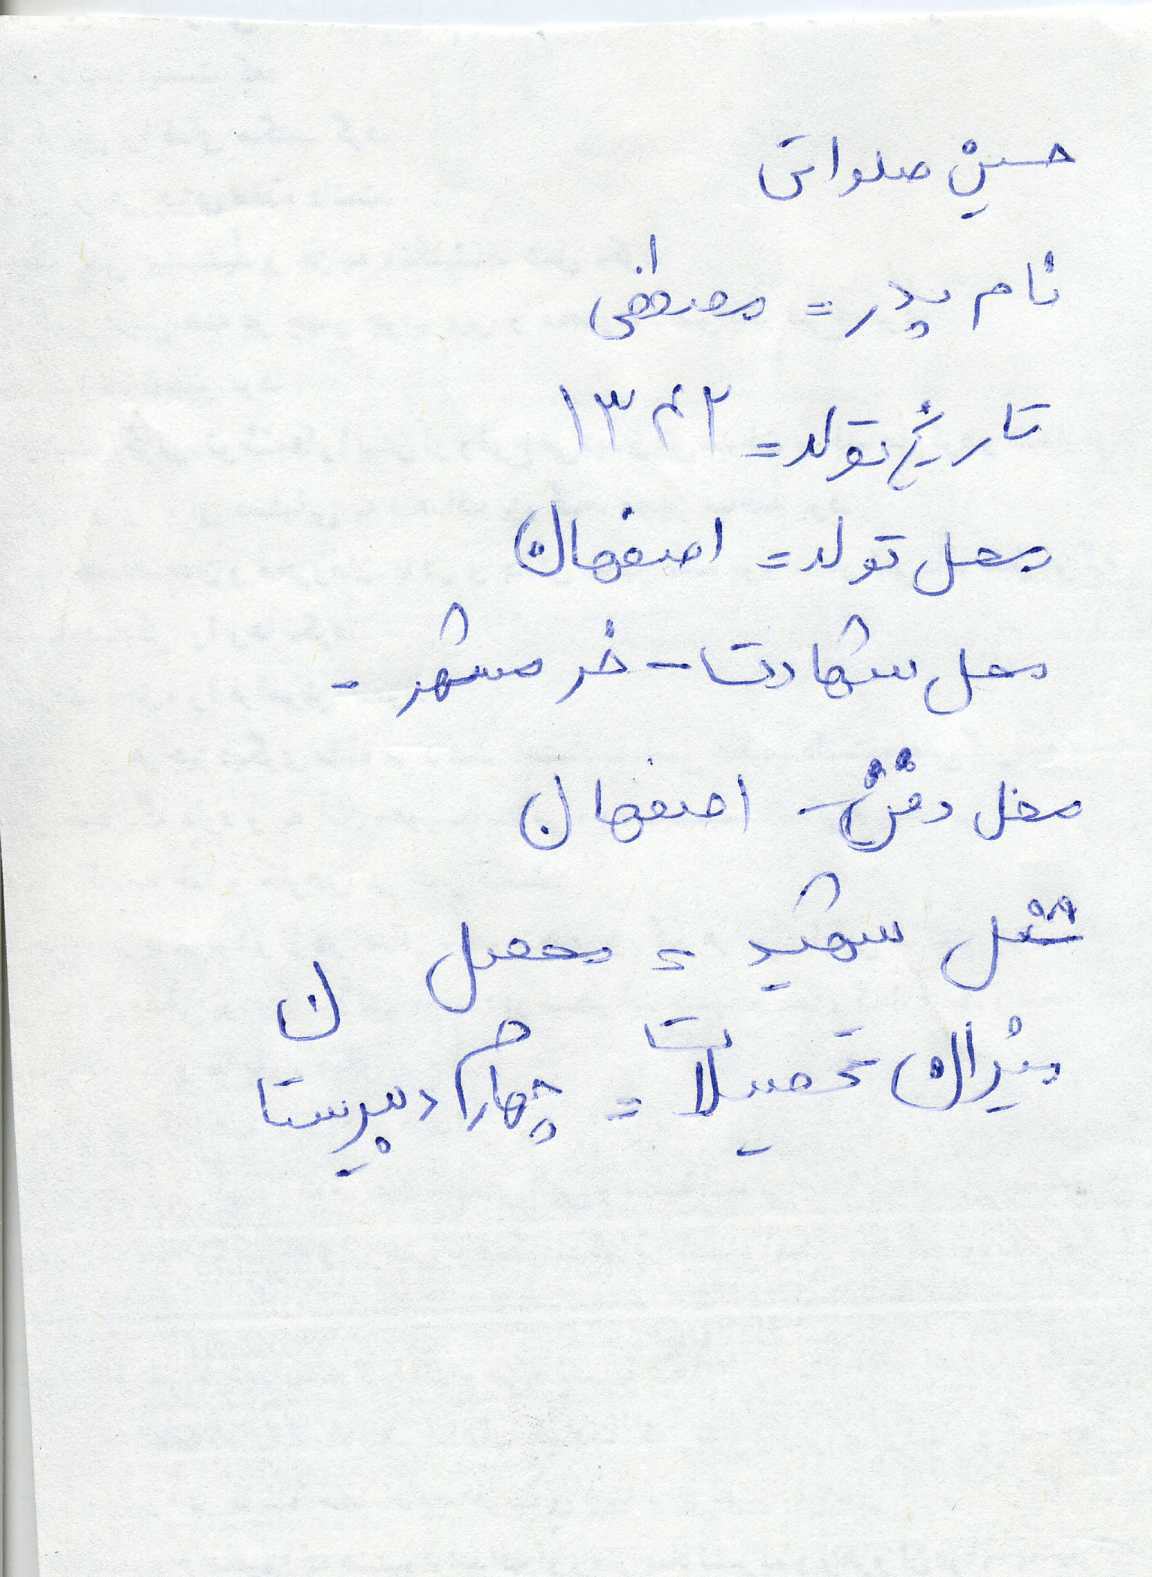 حسین صلواتی
نام پدر = مصطفی
تاریخ تولد = ۱۳۴۲
محل تولد = اصفهان
محل شهادت - خرمشهر -
محل دفن - اصفهان
شغل شهید = محصل
میزان تحصیلات = چهارم دبیرستان